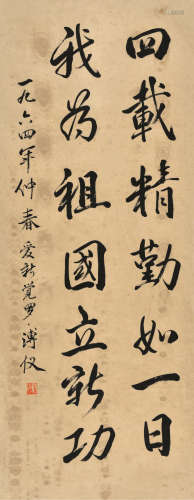 四載精勤如一日
我为祖國立新功
一九六四年仲春 爱新觉罗·溥仪